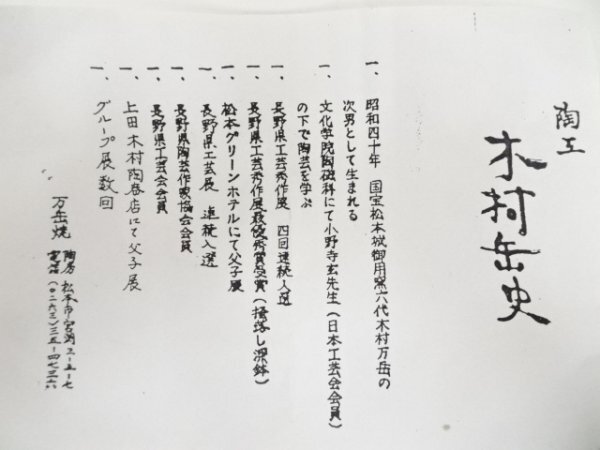 陶工
木村岳史
一、昭和四十年 国宝松本城御用窯六代木村万岳の
次男として生まれる
一、文化学院陶磁科にて小野寺玄先生(日本工芸会会員)
の下で陶芸を学ぶ
一、長野県工芸秀作展 四回連続入選
一、長野県工芸秀作展最優秀賞受賞(掻落し深鉢)
一、松本グリーンホテルにて父子展
一、長野県工芸展 連続入選
一、長野県陶芸作家協会会員
一、長野県工芸会会員
一、上田木村陶器店にて父子展
一、グループ展数回
万岳焼
陶房 松本市宮渕2-5-七
電話(〇二六三)三五-四七三六